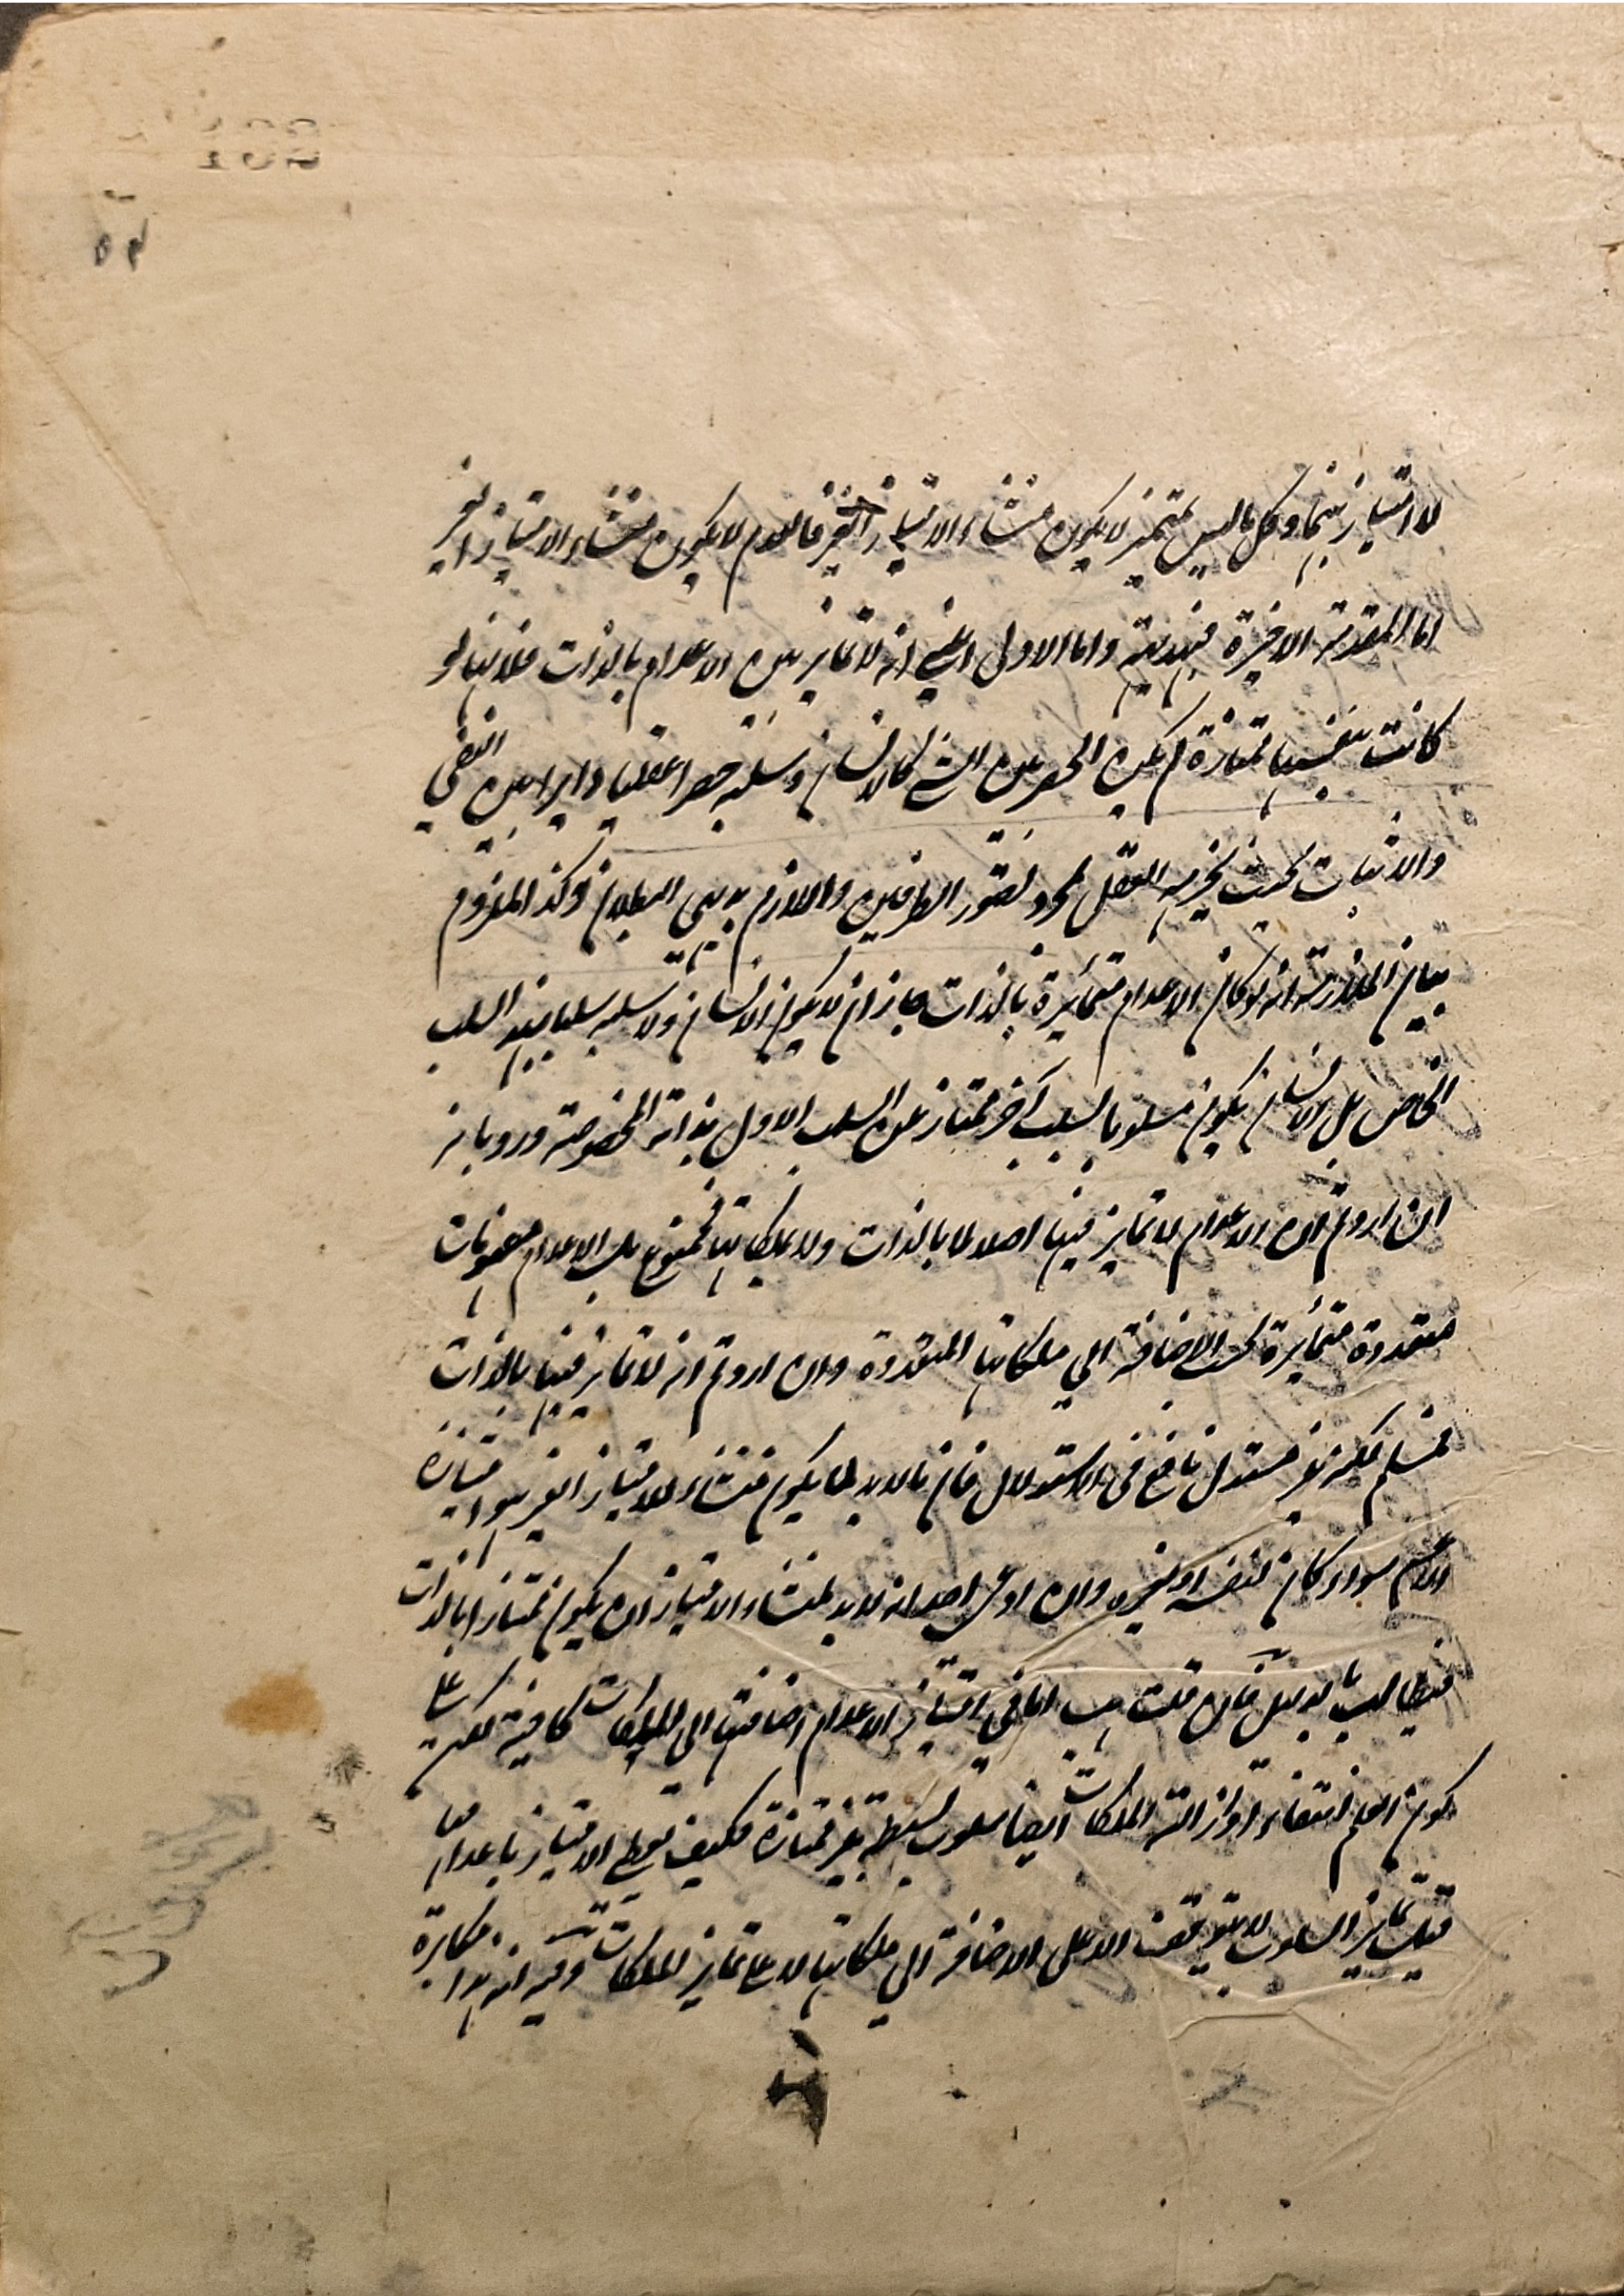 لا امتياز بينهما وكل ما ليس بمتميز لا يكون منشاء الامتياز الغير فالعدم لا يكون منشاء الامتياز الغير
اما المقدمة الاخيرة فبديهية واما الاولى اعني انه لا تمايز بين الاعدام بالذات فلانها لو
كانت بنفسها ممتازة لم يكن الحصر بين الشي كالانسان وسلبه حصرا عقليا دايرا بين النفي
والاثبات بحيث يجزم به العقل بمجرد تصور الطرفين واللازم بديهي البطلان وكذا الملزوم
بيان الملازمة انه لو كان الاعدام متمائزة بالذات جاز ان لا يكون الانسان ولا سلبه سلبا بهذا السلب
الخاص بل الانسان يكون مسلوبا بسلب آخر ممتاز عن السلب الاول بذاته المخصوصة ورد بانه
ان اردتم ان الاعدام لا تمايز فيها اصلا لا بالذات ولا بملكاتها فممنوع بل الاعدام مفهومات
متعددة متمائزة بحسب الاضافة الى ملكاتها المتعددة وان اردتم انه لا تمايز فيها بالذات
فمسلم لكنه غير مستدل نافع في الاستدلال فان ما لا بد لما يكون منشاء للامتياز الغير هو امتيازه
الاعم سواء كان لنفسه او لغيره وان ادعى احد انه لا بد لمنشاء الامتياز ان يكون ممتازا بالذات
فيطالب بالدليل فان قلت هب انا في امتياز الاعدام اضافتها الى الملكات كافية لكن على
كون العلم انتفاء او ازالة الملكات ايضا سلوب بسيطة غير ممتازة فكيف تعطي الامتياز باعدامها
قيل تمايز السلوب لا يتوقف الا على الاضافة الى ملكاتها لا على تمايز الملكات وفيه انه هذا مكابرة